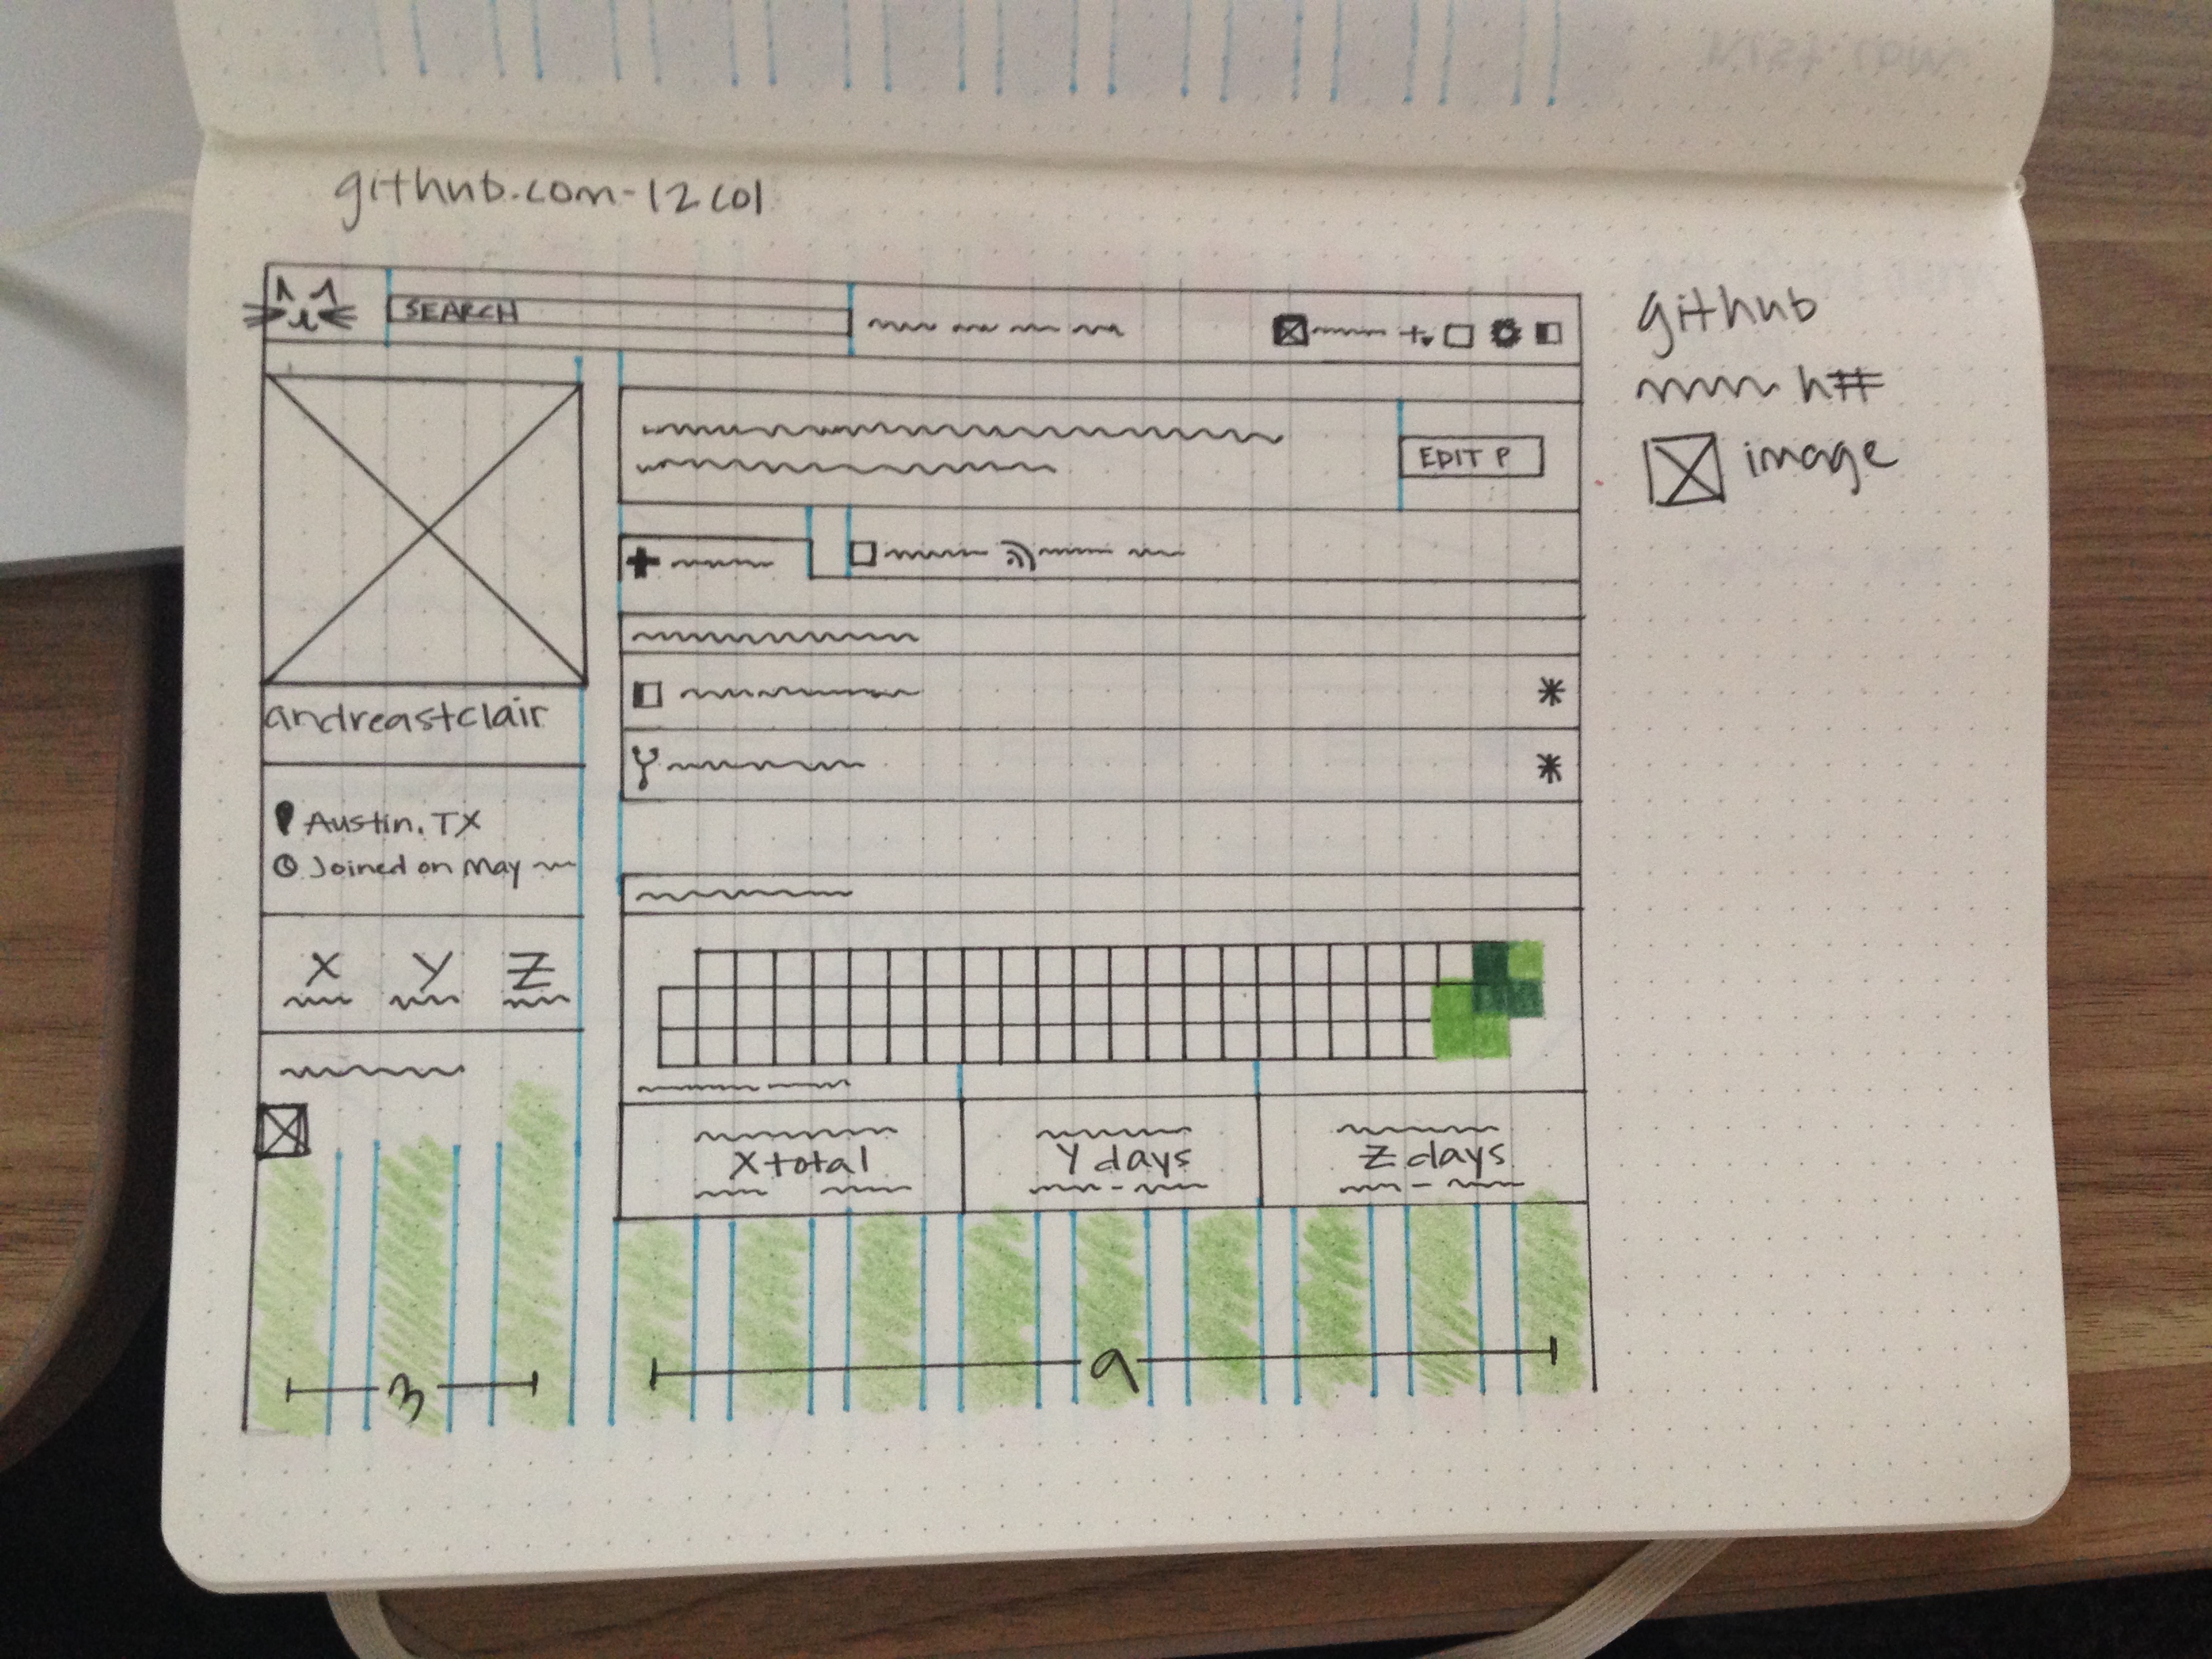 github.com-12 col
SEARCH
EDIT P
andreastclair
Austin, TX
Joined on May
X Y Z
X total
Y days
Z days
3
9
github
h#
image